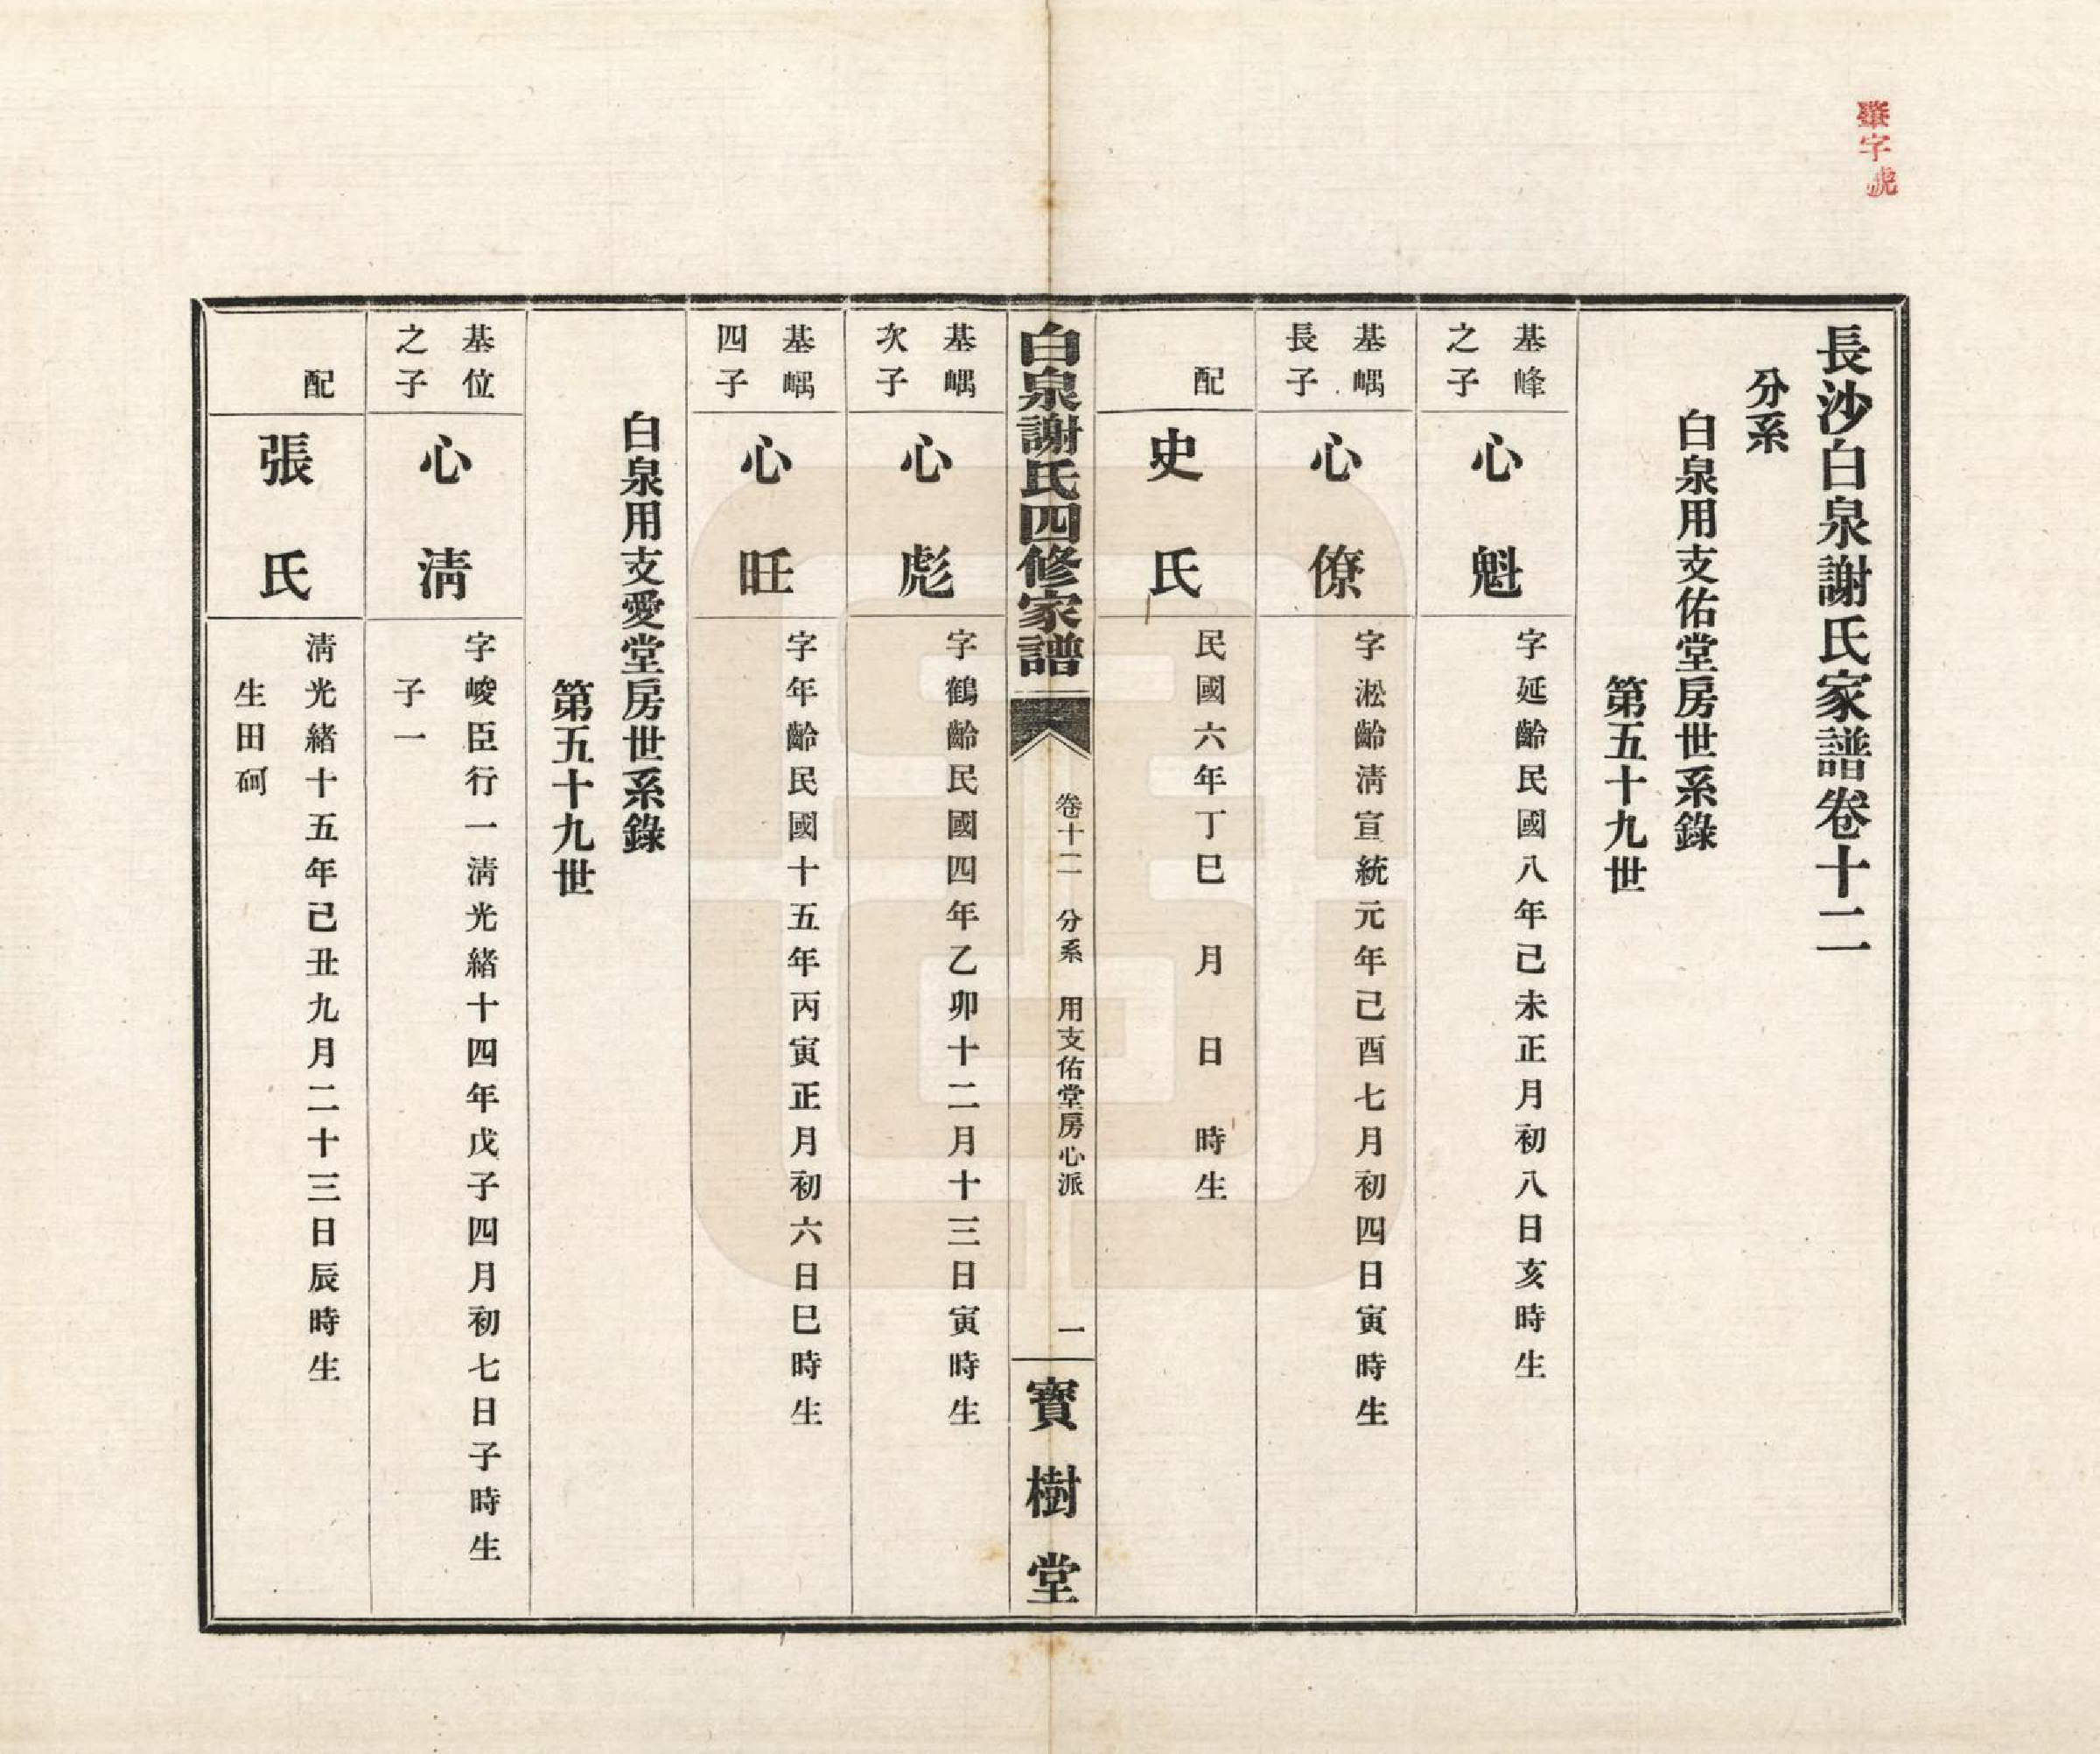 字號
長沙白泉謝氏家譜卷十二
分系
白泉用支佑堂房世系錄
第五十九世
基峰
之子
心魁
字延齡民國八年己未正月初八日亥時生
基嵎
長子
心僚
字淞齡淸宣統元年己酉七月初四日寅時生
配
史氏
民國六年丁巳 月 日 時生
白泉謝氏四修家譜
卷十二 分系 用支佑堂房心派
一
寶樹堂
基嵎
次子
心彪
字鶴齡民國四年乙卯十二月十三日寅時生
基嵎
四子
心旺
字年齡民國十五年丙寅正月初六日巳時生
白泉用支愛堂房世系錄
第五十九世
基位
之子
心淸
字峻臣行一淸光緒十四年戊子四月初七日子時生
子一
配
張氏
淸光緒十五年己丑九月二十三日辰時生
生田砢